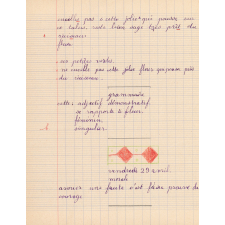 cueillez pas cette jolie fleur qui pousse sur
le talus. reste bien sage tout près du
ruisseau
fleur
une petite
ne cueille pas cette jolie fleur qui pousse près
du ruisseau
grammaire
cette: adjectif démonstratif
se rapporte à fleur
féminin
singulier
vendredi 29 avril
morale
avouer une faute c'est faire preuve de
courage